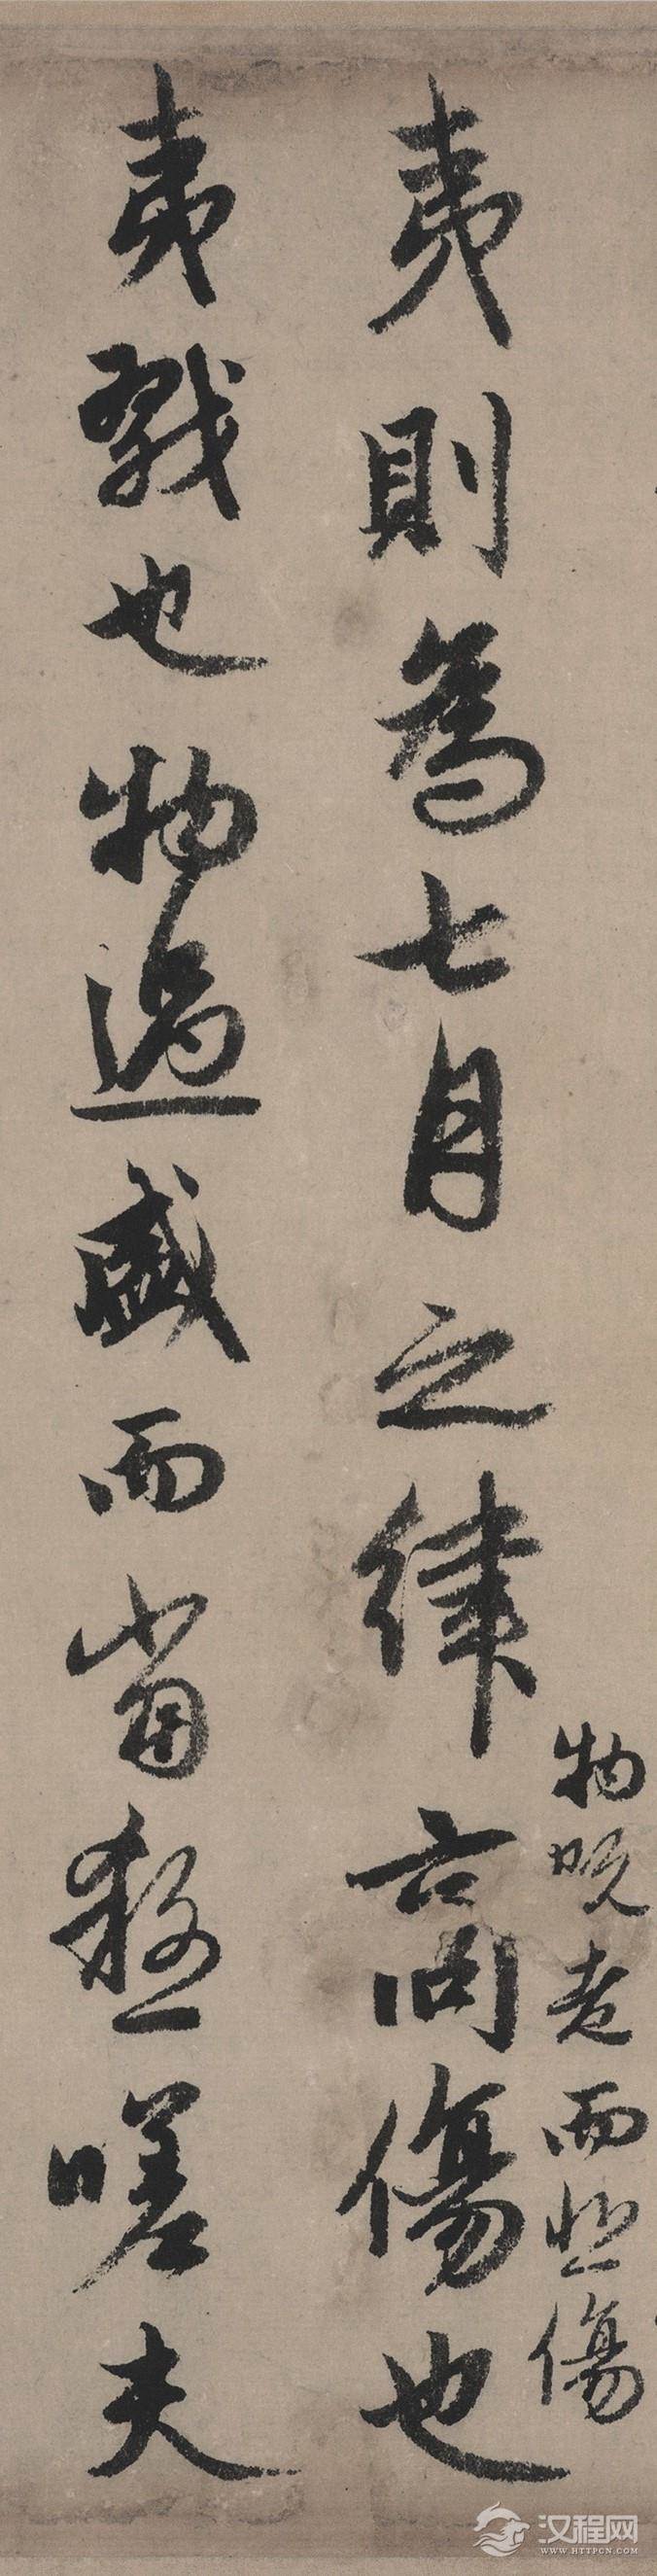 夷則為七月之律商傷也
物既老而悲傷
夷戮也物過盛而當殺嗟夫
汉程网
WWW.HTTPCN.COM